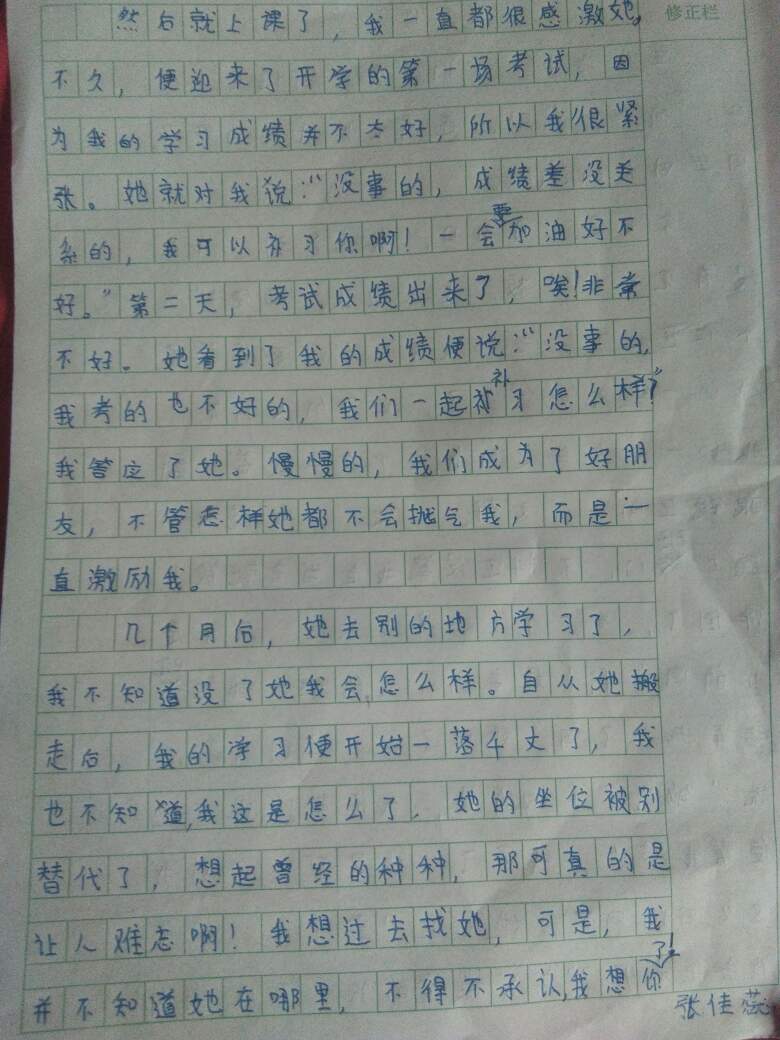 然后就上课了，我一直都很感激她，
修正栏
不久，便迎来了开学的第一场考试，因
为我的学习成绩并不太好，所以我很紧
张。她就对我说："没事的，成绩差没关
系的，我可以补习你啊！一会要加油好不
好。"第二天，考试成绩出来了，唉！非常
不好。她看到了我的成绩便说："没事的，
我考的也不好的，我们一起补习怎么样？"
我答应了她。慢慢的，我们成为了好朋
友，不管怎样她都不会抛弃我，而是一
直激励我。
几个月后，她去别的地方学习了，
我不知道没了她我会怎么样。自从她搬
走后，我的学习便开始一落千丈了，我
也不知道，我这是怎么了，她的坐位被别
替代了，想起曾经的种种，那可真的是
让人难忘啊！我想过去找她，可是，我
并不知道她在哪里，不得不承认，我想你了！
张佳蕊